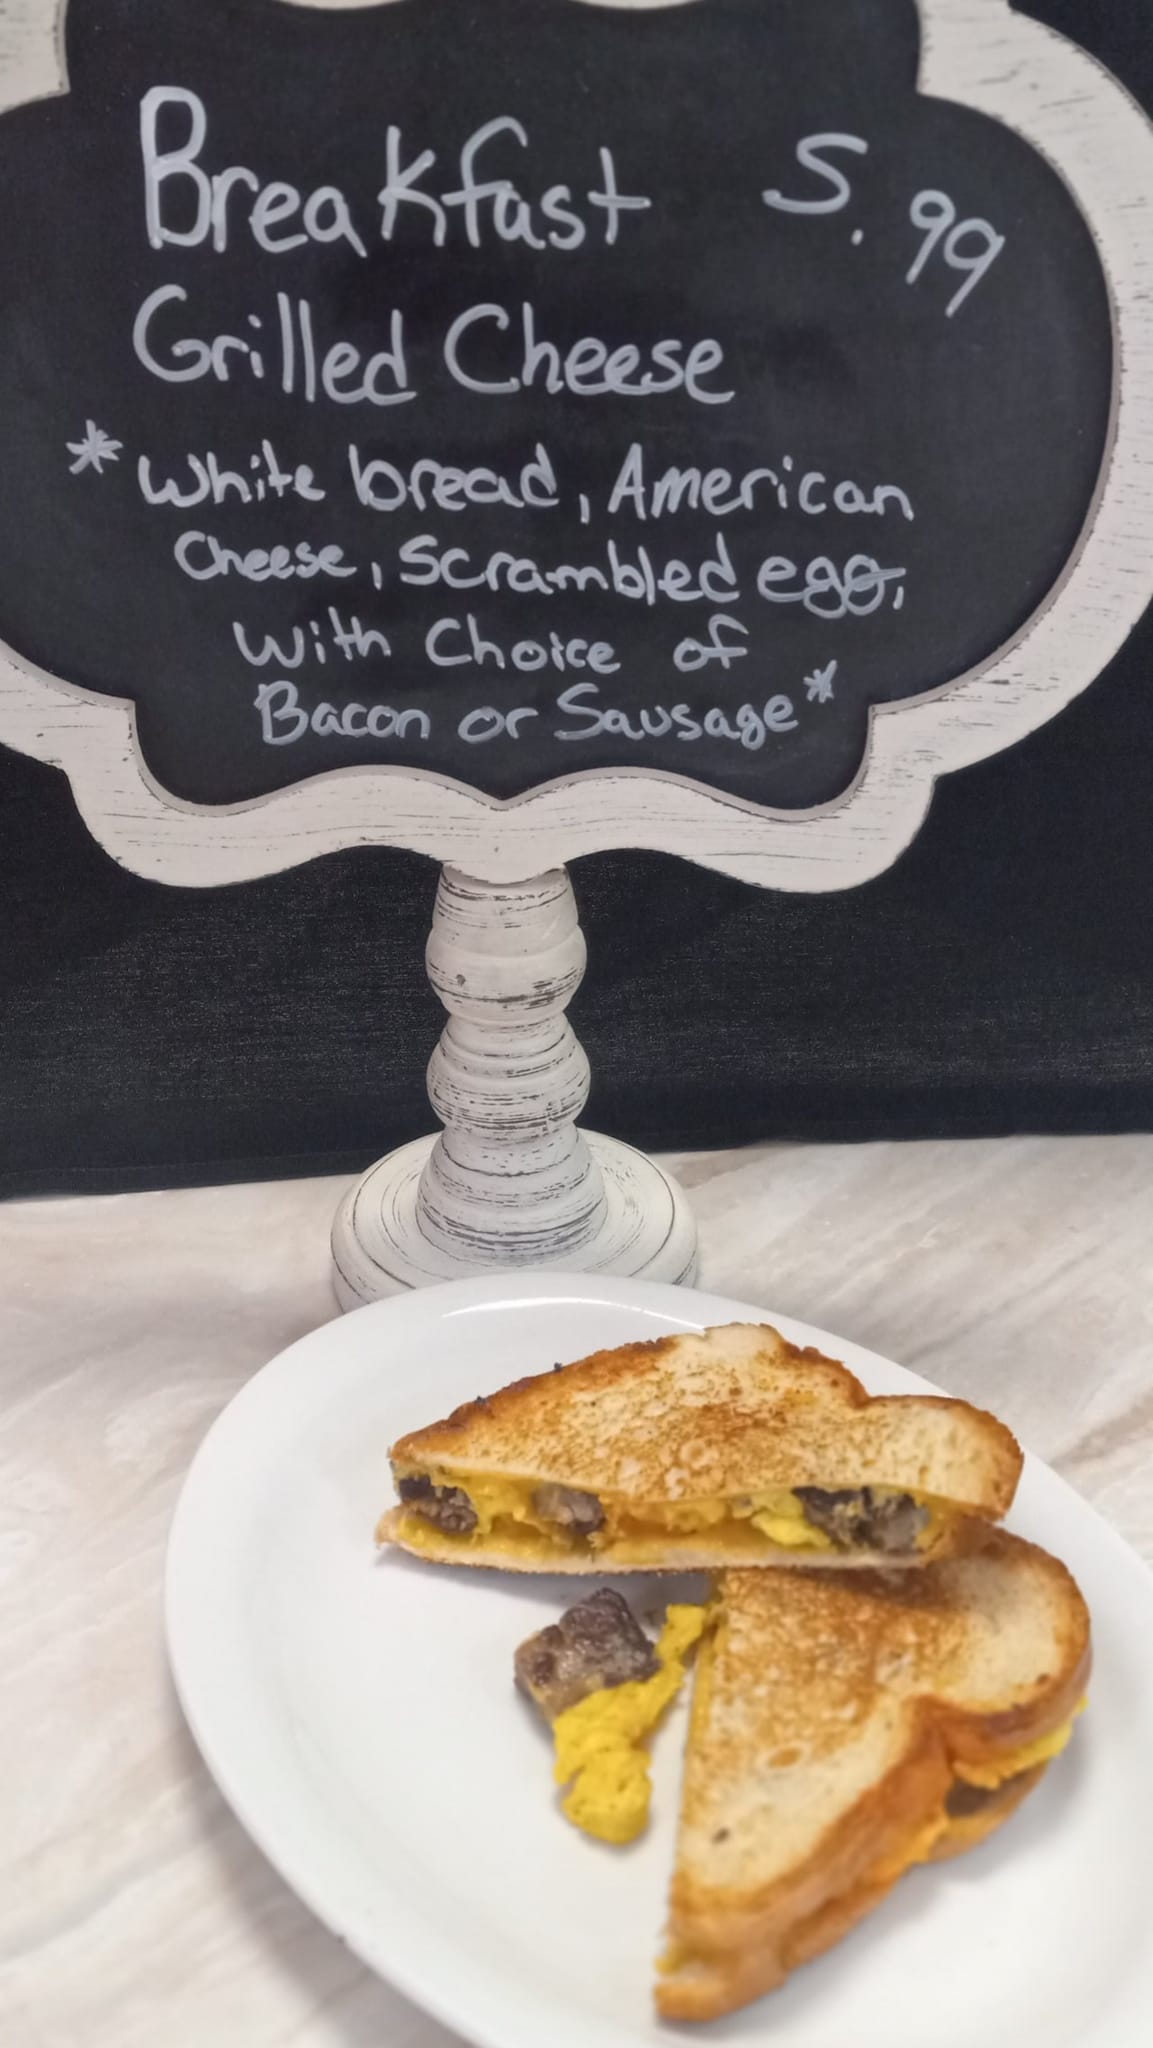 Breakfast 5.99
Grilled Cheese
*White bread, American
Cheese, Scrambled egg,
With Choice of
Bacon or Sausage*